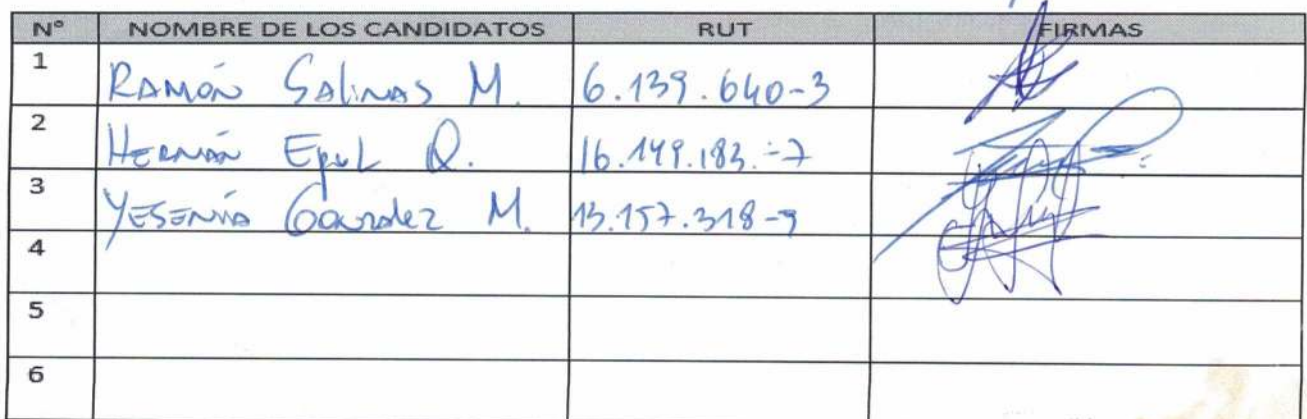 N° NOMBRE DE LOS CANDIDATOS RUT FIRMAS
1 RAMÓN SALINAS M. 6.139.640-3
2 HERNÁN EPUL Q. 16.149.183.-7
3 YESENIA GONZALEZ M. 13.157.318-9
4
5
6